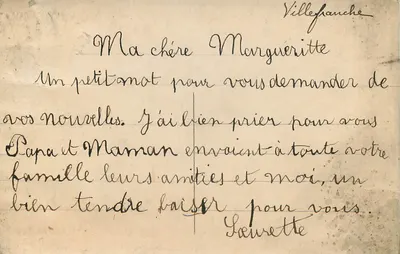 Villefranche
Ma chére Margueritte
Un petit mot pour vous demander de
vos nouvelles. J'ai bien prier pour vous
Papa et Maman envoient à toute votre
famille leurs amitiés et moi, un
bien tendre baiser pour vous.
Sœurette